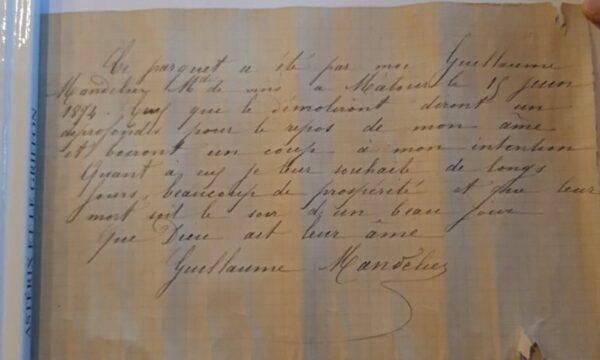 Ce parquet a été par moi Guillaume
Mandelier Md de vins a Matour le 15 juin
1894. que le démoliront diront un
deprofondis pour le repos de mon âme
et boiront un coup à mon intention
Quant à eux je leur souhaite de longs
jours, beaucoup de prospérité et que leur
mort soit le soir d'un beau jour
Que Dieu ait leur âme
Guillaume Mandelier
ASTÉRIX ET LE GRIFFON